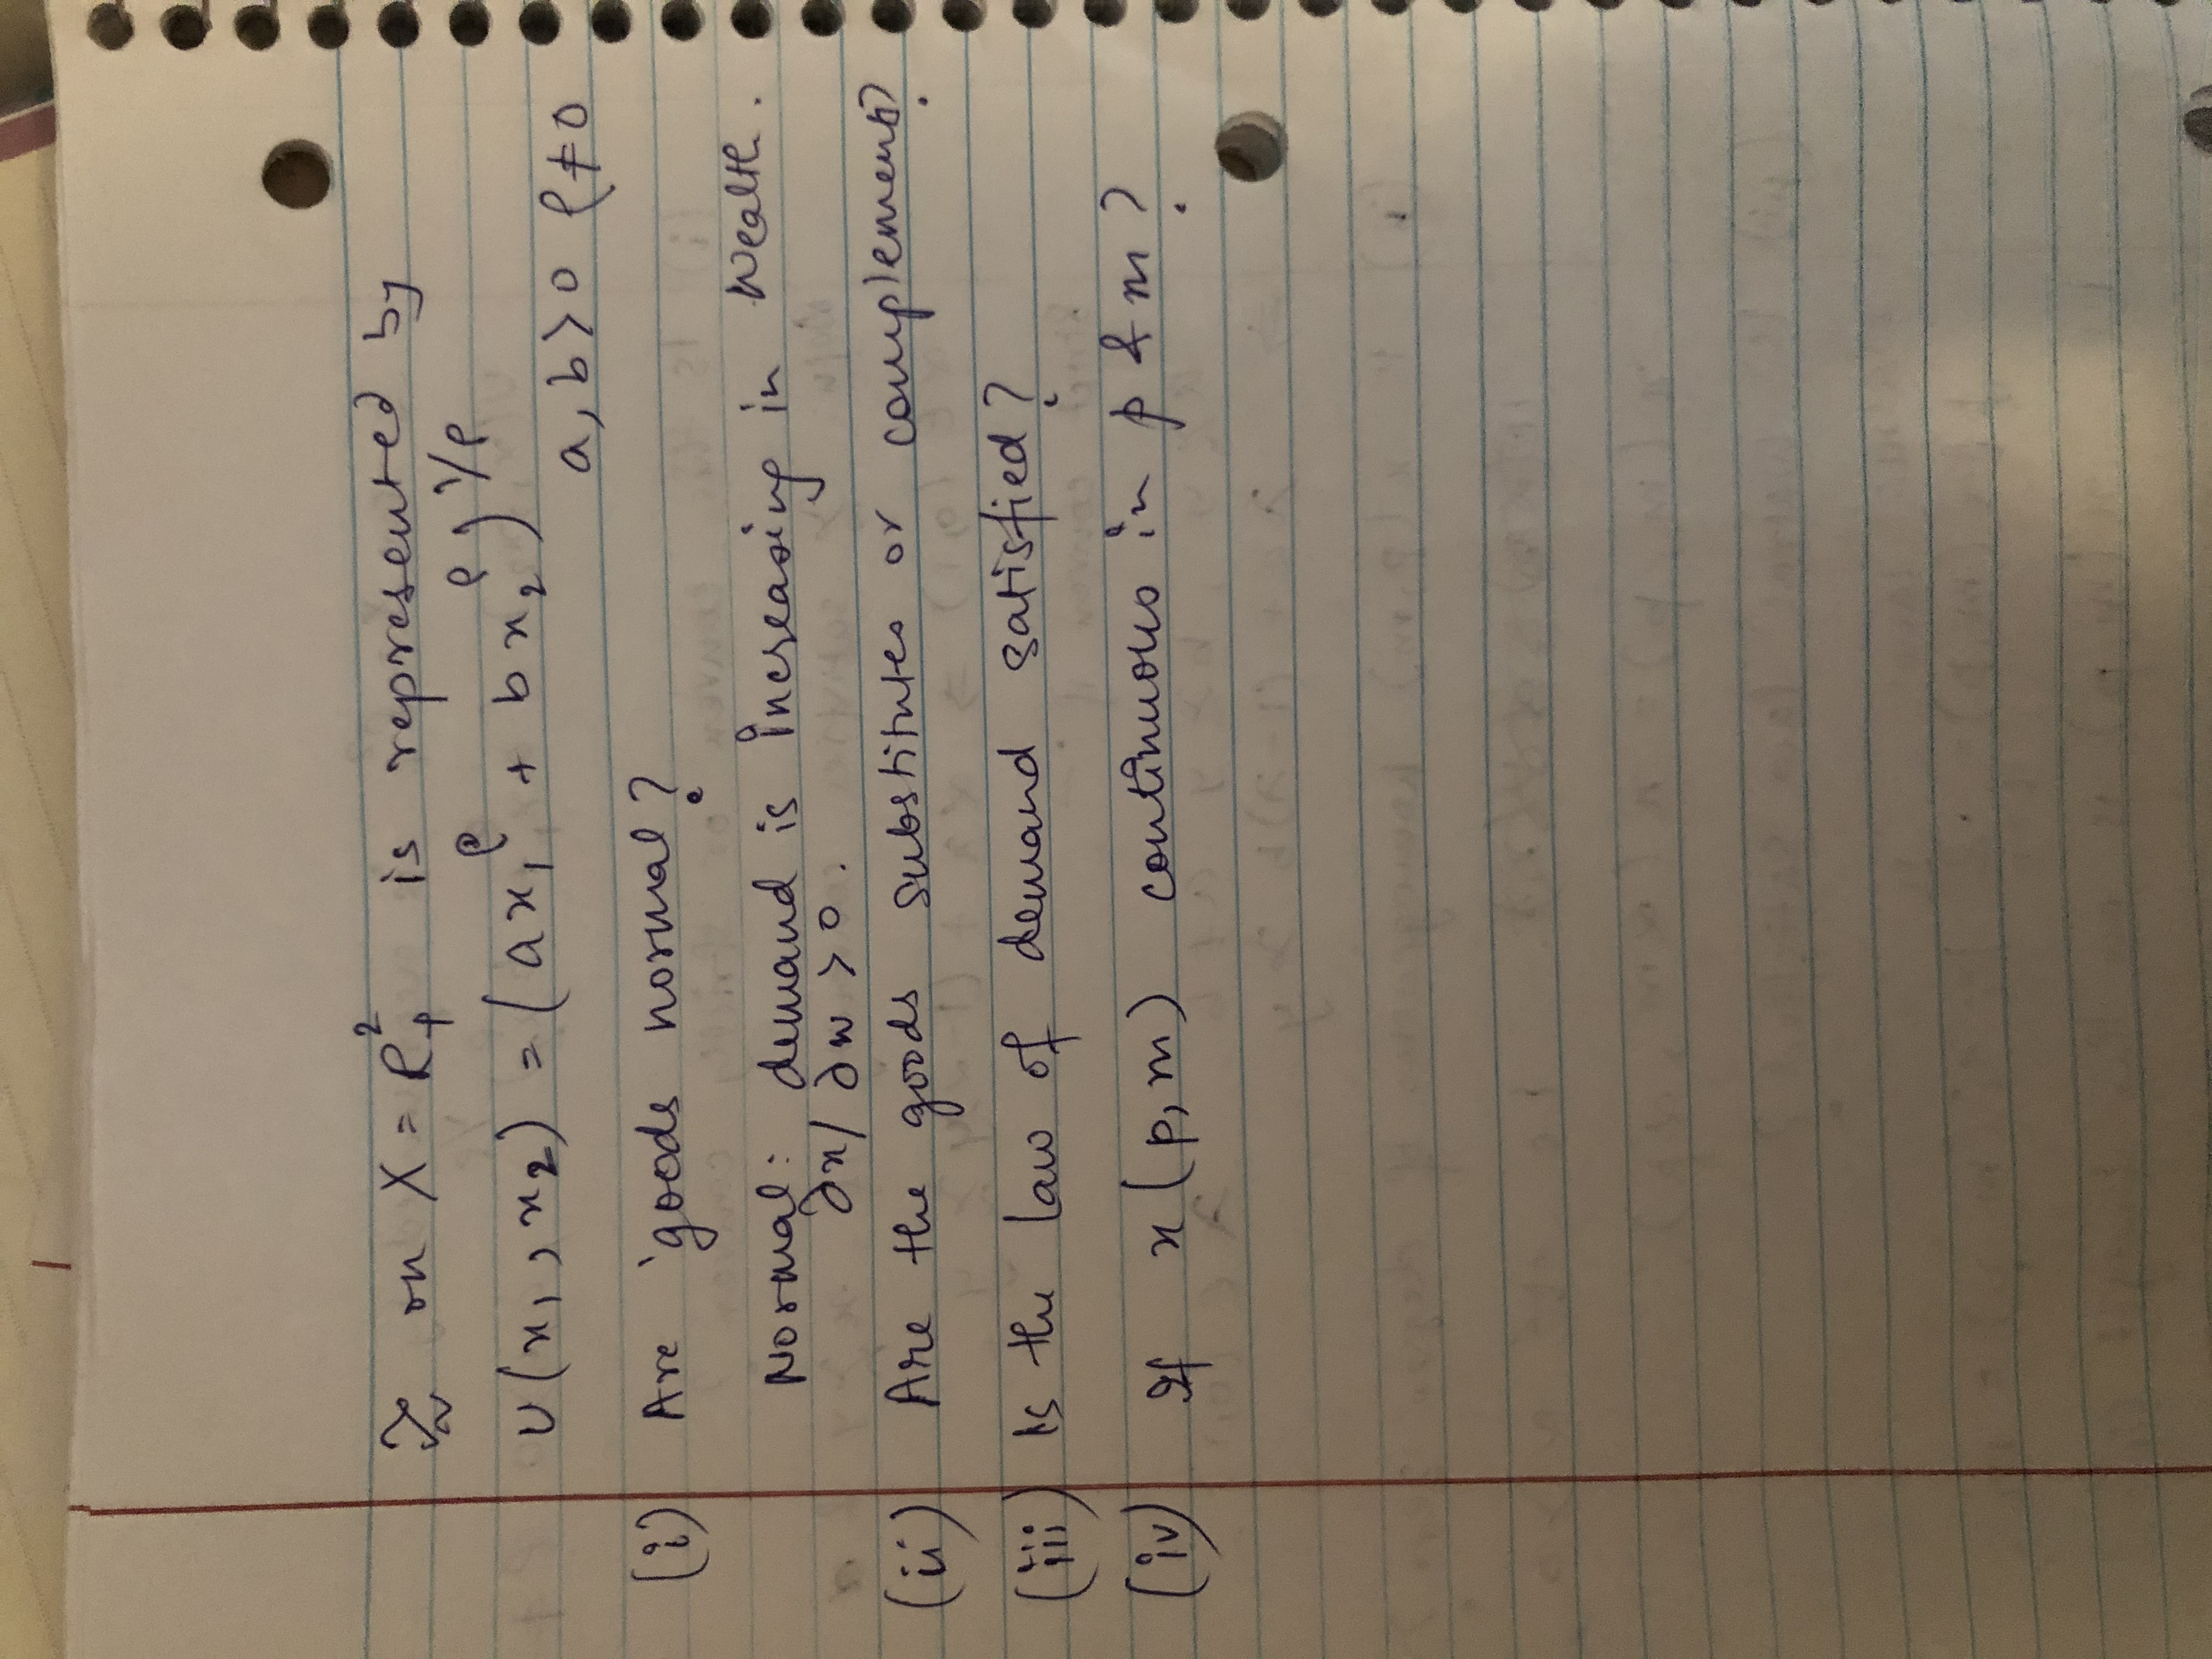 ≿ on X = R₊² is represented by
U(x₁, x₂) = (ax₁^ρ + bx₂^ρ)^1/ρ
a, b > 0 ρ ≠ 0
(i) Are goods normal?
Normal: demand is increasing in wealth.
∂x/∂w > 0.
(ii) Are the goods substitutes or complements?
(iii) Is the law of demand satisfied?
(iv) If x(p,m) continuous in p & m?